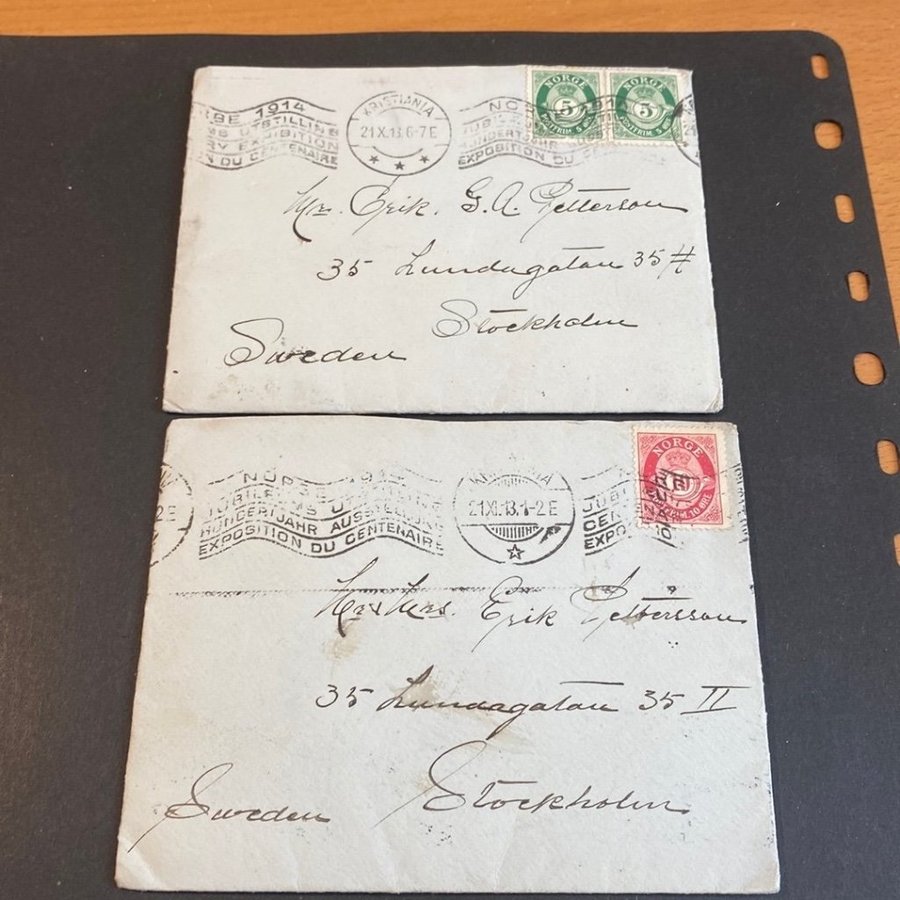 RBE 1914
MS UTSTILLING
RY EXHIBITION
N DU CENTENAIRE
KRISTIANIA
21.X.13.6-7E
NO
1914
JUBILÆ
HUNDERTJAHR
EXPOSITION DU CE
NORGE
5
POSTFRIM 5
NORGE
5
POSTFRIM 5
Mr. Erik. G. A. Petterson
35 Lundagatan 35 II
Stockholm
Sweden
2E
JUBILÆ MS UTSTILLING
HUNDERTJAHR AUSSTELLUNG
EXPOSITION DU CENTENAIRE
21.XI.13.1-2E
JUBI
CEN
EXPO
NORGE
10 ØRE
Mr & Mrs. Erik Pettersson
35 Lundagatan 35 II
Stockholm
Sweden